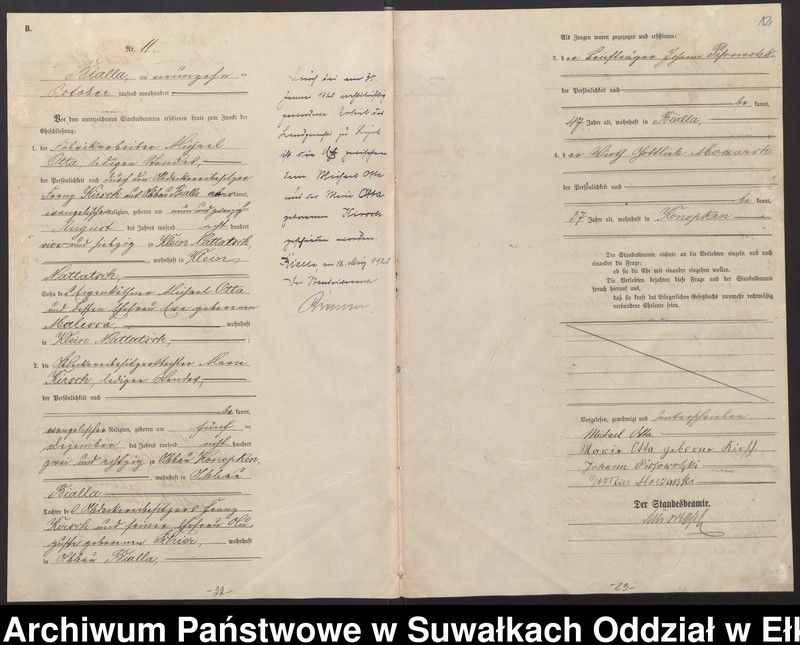 B.
Nr. 11.
Bialla, am neunzehn ten
October tausend neunhundert
Vor dem unterzeichneten Standesbeamten erschienen heute zum Zwecke der
Eheschließung:
1. der Fabrikarbeiter Michael
Otta, ledigen Standes,
der Persönlichkeit nach durch den
Franz Kirsch aus Abbau Bialla kannt,
evangelischer Religion, geboren am neun und zwanzig
August des Jahres tausend acht hundert
vier und siebzig zu Klein Nattatsch,
, wohnhaft in Klein
Nattatsch,
Sohn des Eigenkäthner Michael Otta
und dessen Ehefrau geborenen
Malessa, wohnhaft
in Klein Nattatsch,
2. die Marie
Kirsch, ledigen Standes,
der Persönlichkeit nach
be kannt,
evangelischer Religion, geboren am fünf ten
Dezember des Jahres tausend acht hundert
zwei und achtzig zu Abbau Konopken,
, wohnhaft in Abbau
Bialla,
Tochter des Franz
Kirsch und seiner Ehefrau Au-
guste geborenen wohnhaft
in Abbau Bialla,
-22-
Durch das am
1928 rechtskräftig
gewordene Urteil des
Landgerichts zu
ist die Ehe zwischen
dem Michael Otta
und der Marie Otta
geborenen Kirsch
geschieden worden.
Bialla am 12. März 1928
Der Standesbeamte
12
Als Zeugen waren zugezogen und erschienen:
3. der Briefträger Johann
der Persönlichkeit nach
be kannt,
47 Jahre alt, wohnhaft in Bialla,
4. der Wirth Gottlieb
der Persönlichkeit nach
be kannt,
37 Jahre alt, wohnhaft in Konopken
Der Standesbeamte richtete an die Verlobten einzeln und nach
einander die Frage:
ob sie die Ehe mit einander eingehen wollen.
Die Verlobten bejahten diese Frage und der Standesbeamte
sprach hierauf aus,
daß sie kraft des Bürgerlichen Gesetzbuchs nunmehr rechtmäßig
verbundene Eheleute seien.
Vorgelesen, genehmigt und unterschrieben
Michael Otta
Marie Otta geborne Kirsch
Johann
Gottlieb
Der Standesbeamte.
-23-
Archiwum Państwowe w Suwałkach Oddział w Ełk